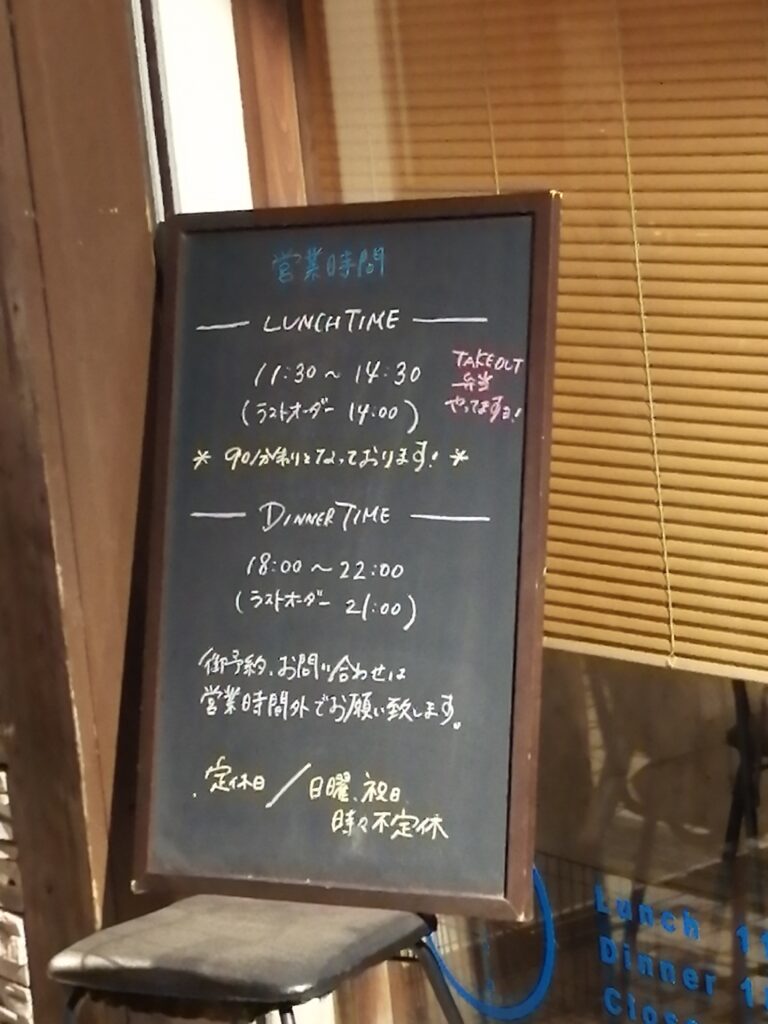 営業時間
LUNCH TIME
11:30 ~ 14:30
(ラストオーダー 14:00)
TAKEOUT
弁当
やってます!
* 90分制となっております! *
DINNER TIME
18:00 ~ 22:00
(ラストオーダー 21:00)
御予約、お問い合わせは
営業時間外でお願い致します。
定休日/日曜、祝日
時々不定休
Lunch 11
Dinner 1
Close